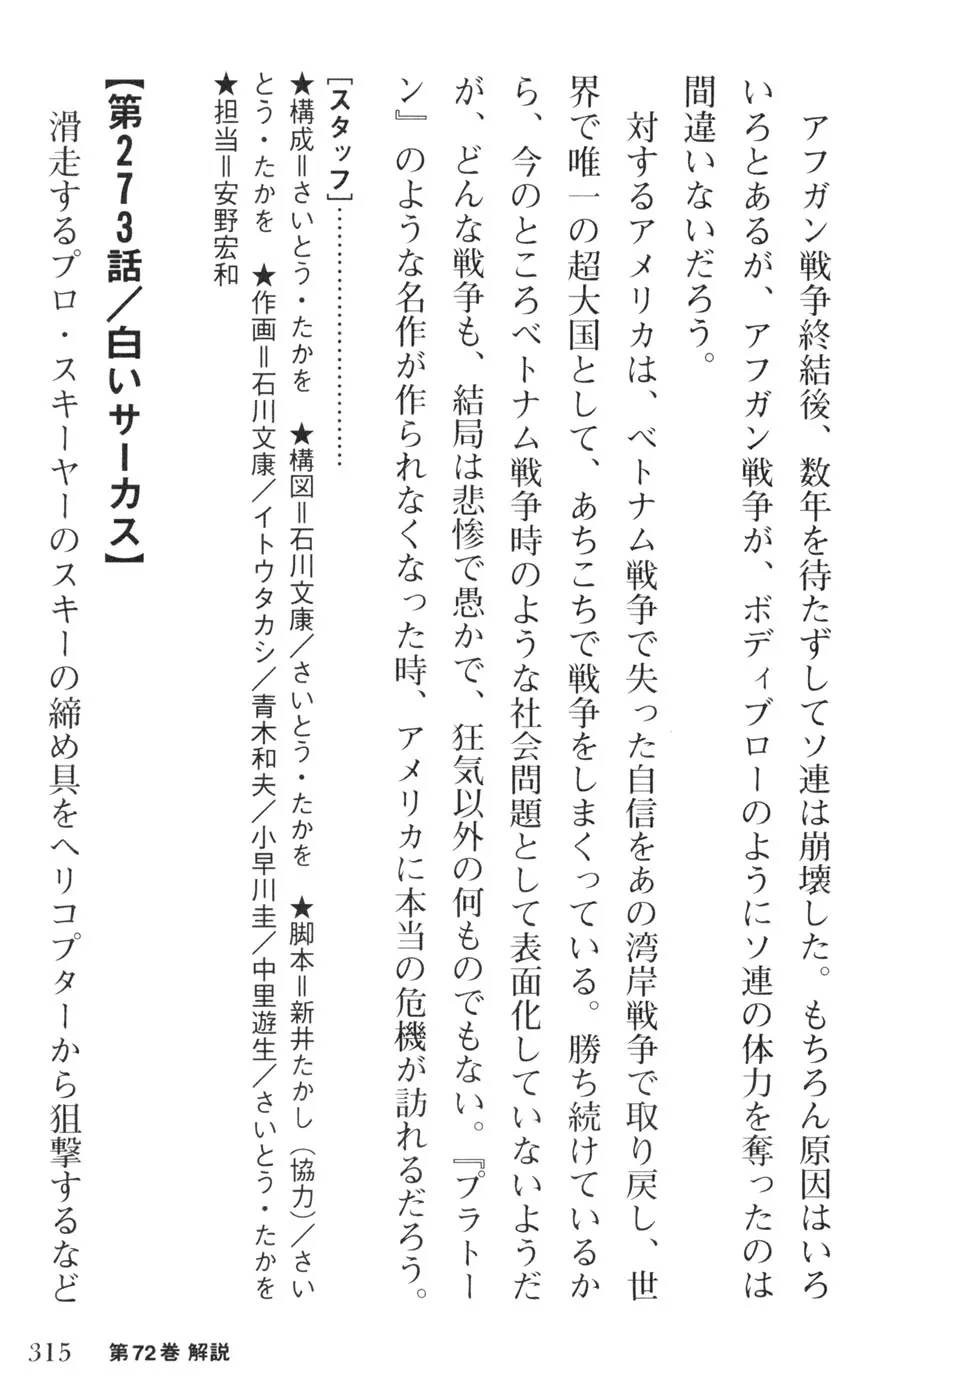 アフガン戦争終結後、数年を待たずしてソ連は崩壊した。もちろん原因はいろ
いろとあるが、アフガン戦争が、ボディブローのようにソ連の体力を奪ったのは
間違いないだろう。
対するアメリカは、ベトナム戦争で失った自信をあの湾岸戦争で取り戻し、世
界で唯一の超大国として、あちこちで戦争をしまくっている。勝ち続けているか
ら、今のところベトナム戦争時のような社会問題として表面化していないようだ
が、どんな戦争も、結局は悲惨で愚かで、狂気以外の何ものでもない。『プラトー
ン』のような名作が作られなくなった時、アメリカに本当の危機が訪れるだろう。
[スタッフ]………………………………
★構成＝さいとう・たかを　★構図＝石川文康／さいとう・たかを　★脚本＝新井たかし（協力）／さい
とう・たかを　★作画＝石川文康／イトウタカシ／青木和夫／小早川圭／中里遊生／さいとう・たかを
★担当＝安野宏和
【第273話／白いサーカス】
滑走するプロ・スキーヤーのスキーの締め具をヘリコプターから狙撃するなど
315　第72巻 解説